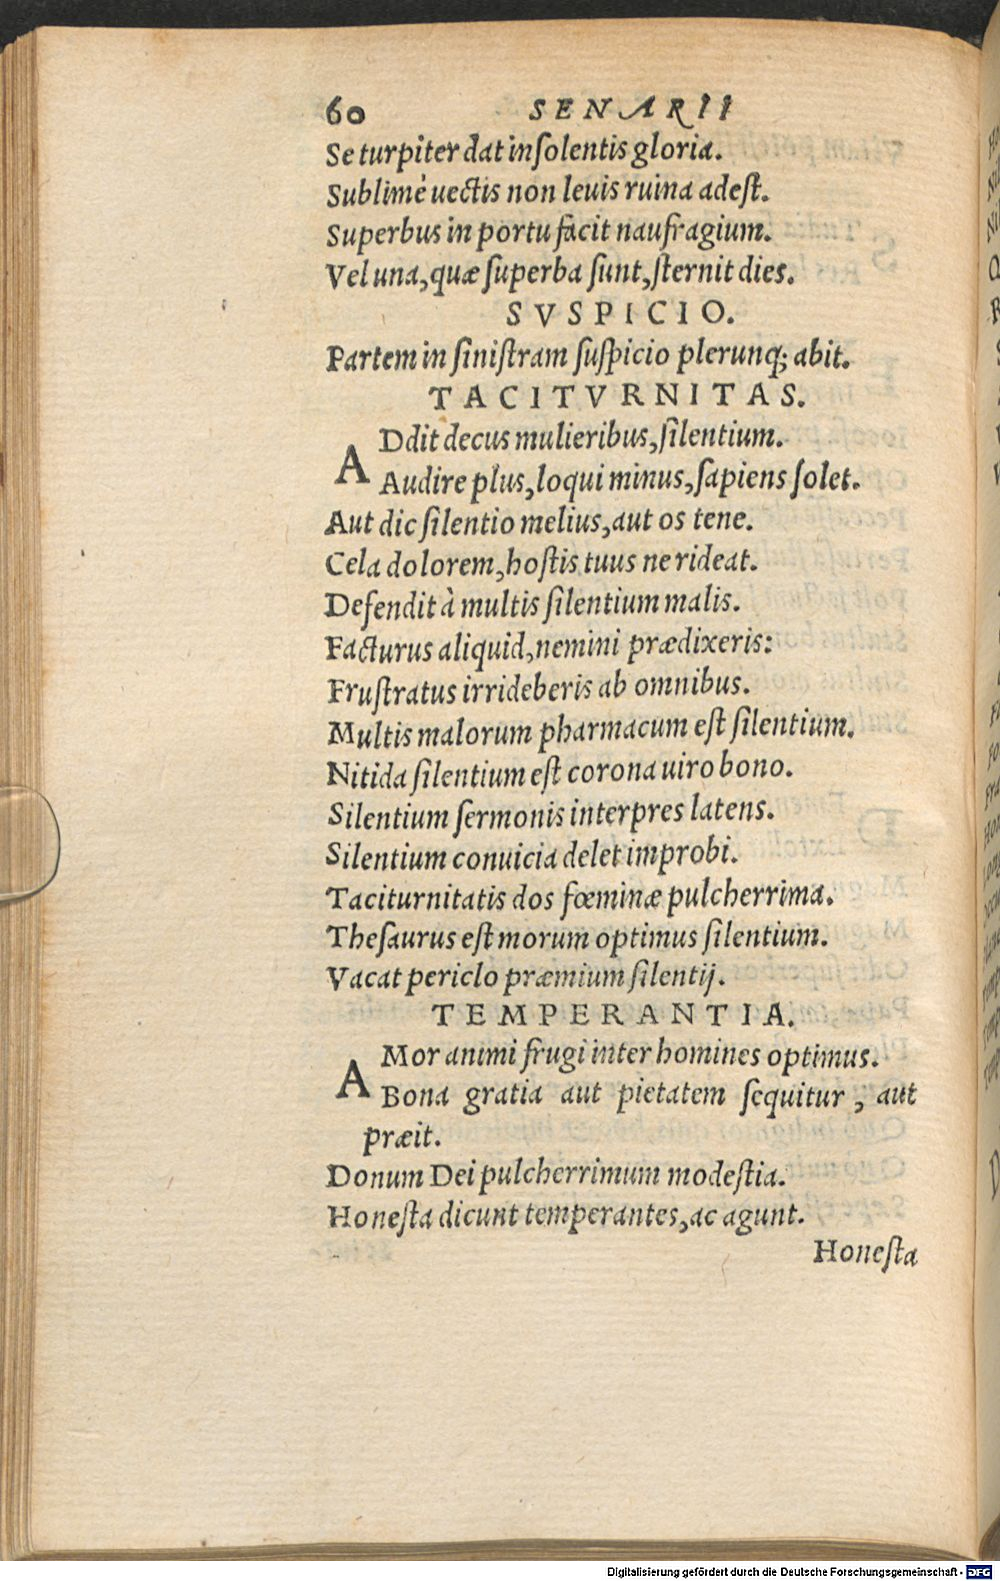 60 SENARII
Se turpiter dat inſolentis gloria.
Sublimè uectis non leuis ruina adeſt.
Superbus in portu facit naufragium.
Vel una, quæ ſuperba ſunt, ſternit dies.
SVSPICIO.
Partem in ſiniſtram ſuſpicio plerunq; abit.
TACITVRNITAS.
ADdit decus mulieribus, ſilentium.
Audire plus, loqui minus, ſapiens ſolet.
Aut dic ſilentio melius, aut os tene.
Cela dolorem, hoſtis tuus ne rideat.
Defendit à multis ſilentium malis.
Facturus aliquid, nemini prædixeris:
Fruſtratus irrideberis ab omnibus.
Multis malorum pharmacum eſt ſilentium.
Nitida ſilentium eſt corona uiro bono.
Silentium ſermonis interpres latens.
Silentium conuicia delet improbi.
Taciturnitatis dos fœminæ pulcherrima.
Theſaurus eſt morum optimus ſilentium.
Vacat periclo præmium ſilentij.
TEMPERANTIA.
AMor animi frugi inter homines optimus.
Bona gratia aut pietatem ſequitur, aut
præit.
Donum Dei pulcherrimum modeſtia.
Honeſta dicunt temperantes, ac agunt.
Honeſta
Digitalisierung gefördert durch die Deutsche Forschungsgemeinschaft - DFG